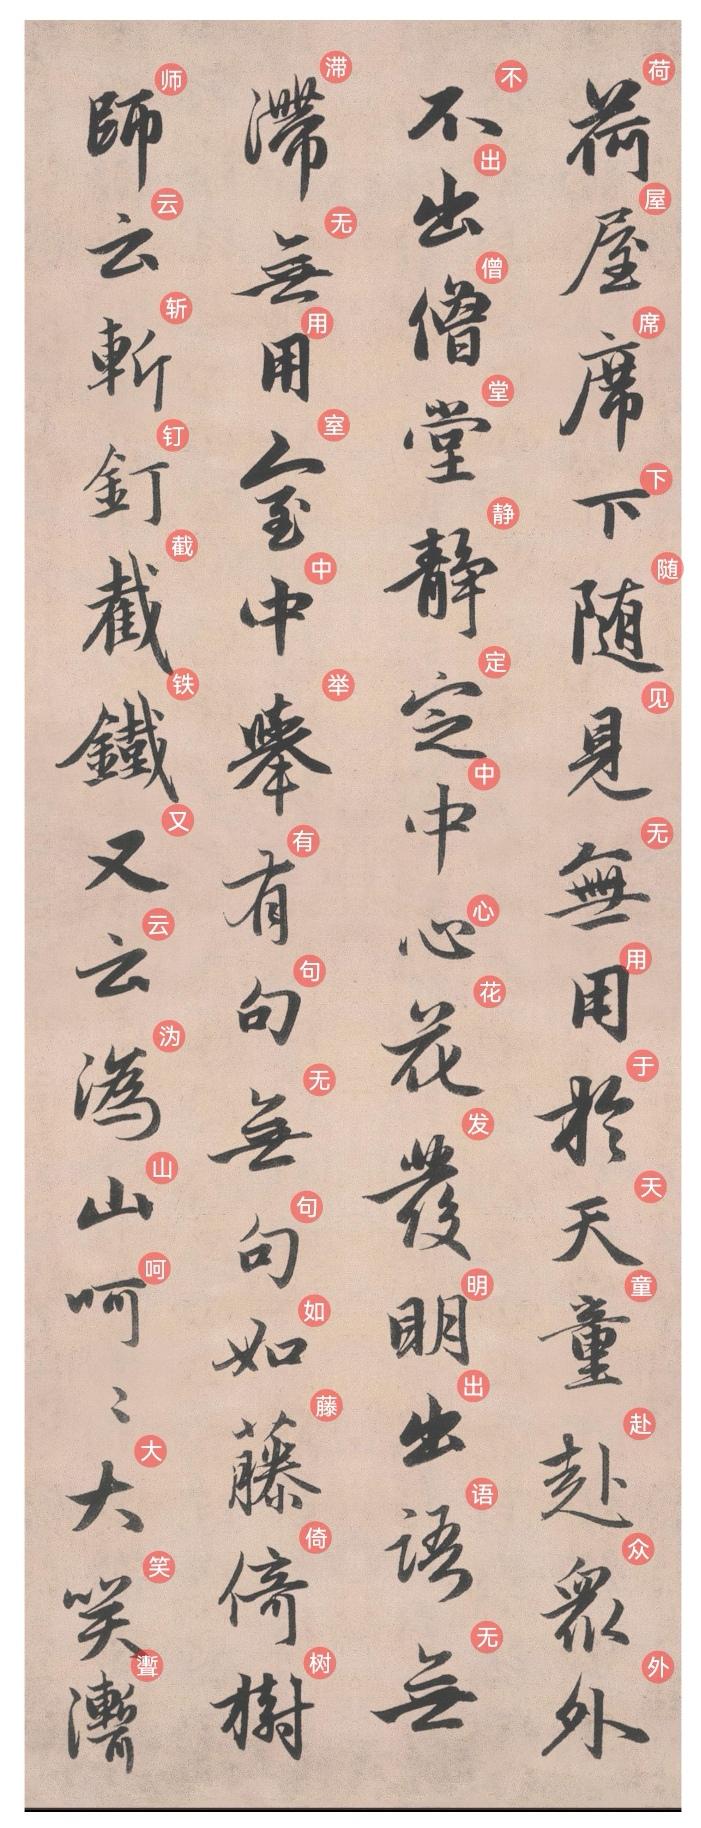 荷屋席下随見無用於天童赴衆外
荷屋席下随见无用于天童赴众外
不出僧堂静定中心花發明出語無
不出僧堂静定中心花发明出语无
滯無用室中舉有句無句如藤倚樹
滞无用室中举有句无句如藤倚树
師云斬釘截鐵又云潙山呵〻大笑
师云斩钉截铁又云沩山呵大笑